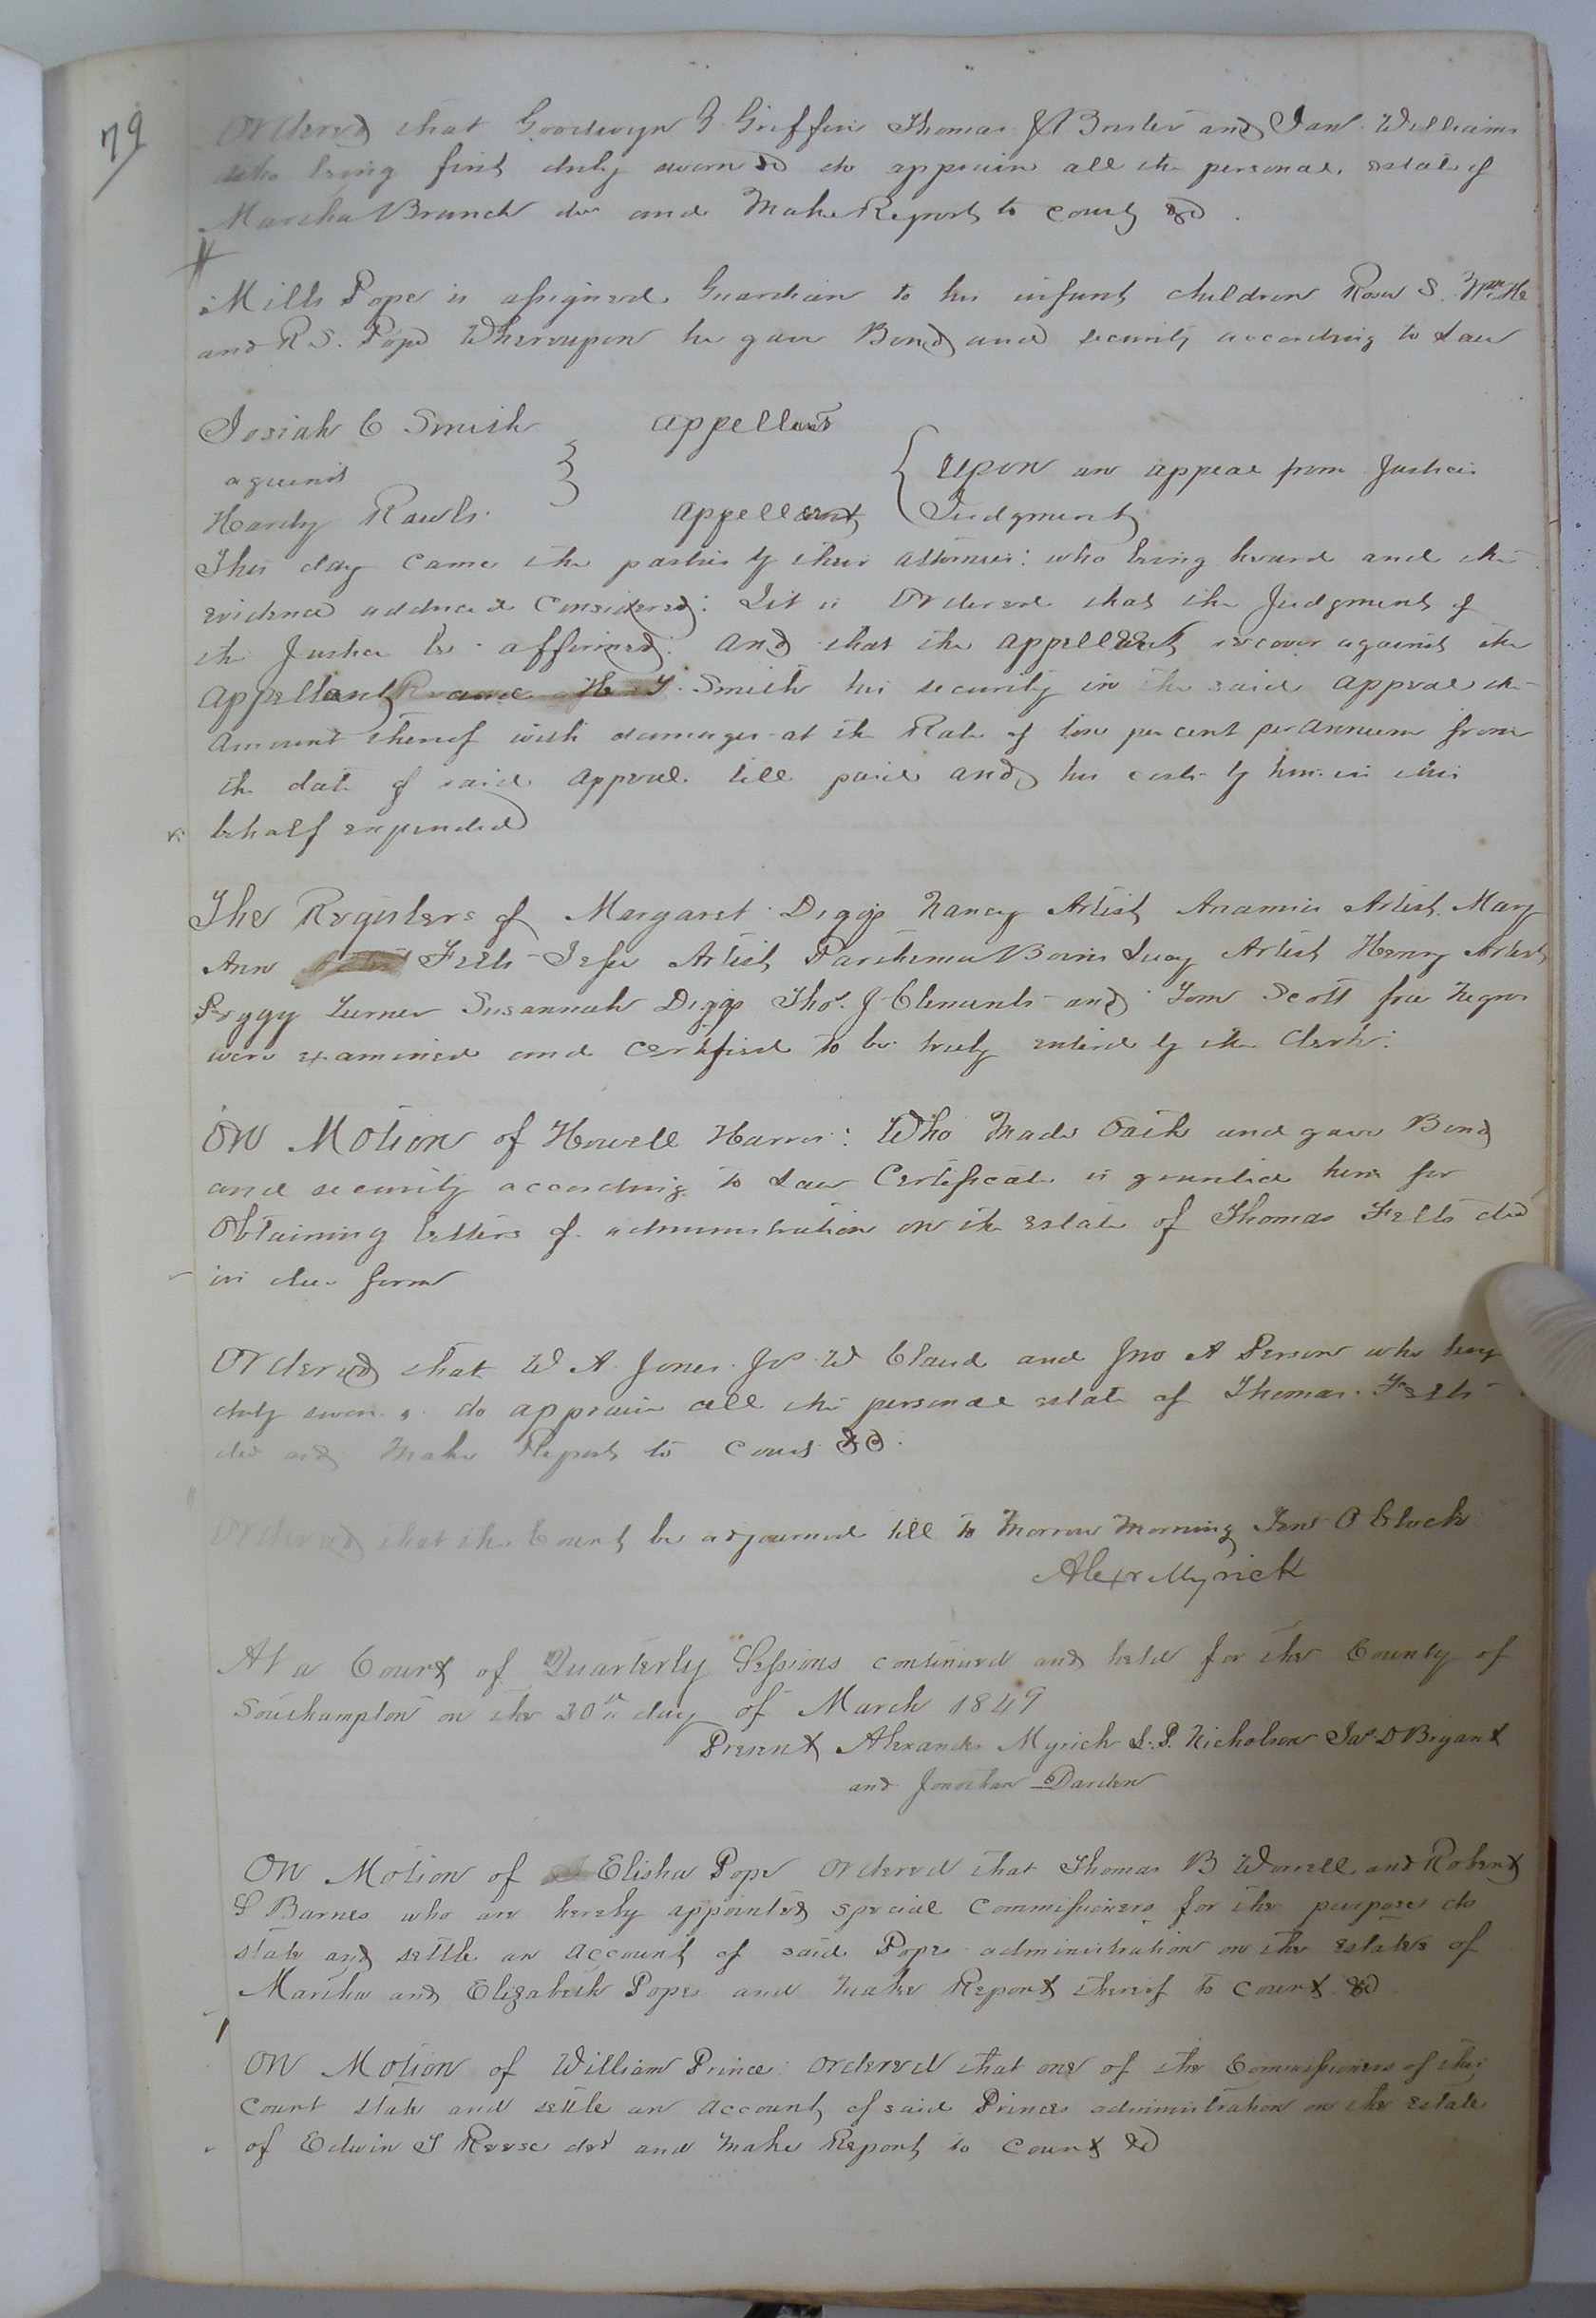 79
Ordered that Goodwyn G Griffin Thomas J Brister and Jas Williams
who being first duly sworn &c do appraise all the personal estate of
Marsha Branch dec and Make Report to court &c.
Mills Pope is assigned Guardian to his infant children Rosa S. Wm H
and R S. Pope Whereupon he gave Bond and security according to Law
Josiah C Smith appellant
against upon an appeal from Justices
Hardy Rawls appellant Judgment
This day came the parties by their attornies: who being heard and the
evidence adduced Considered: It is Ordered that the Judgment of
the Justice be affirmed. and that the appellant recover against the
appellant and Smith his security in the said appeal the
Amount thereof with damages at the Rate of ten per cent per annum from
the date of said appeal till paid and his costs by him in this
behalf expended
The Registers of Margaret Diggs Nancy Artist Anamis Artist Mary
Ann Felts Jesse Artist Parthenia Bowins Lucy Artist Henry Artist
Peggy Turner Susannah Diggs Thos. J Clements and Tom Scott free Negros
were examined and certified to be truly entered by the Clerk.
On Motion of Howell Harris: Who Made Oath and gave Bond
and security according to Law Certificate is granted him for
Obtaining letters of administration on the estate of Thomas Felts decd
in due form
Ordered that W A Jones Js W Claud and Jno A Person who being
duly sworn &c do appraise all the personal estate of Thomas Felts
dec and Make Report to Court &c.
Ordered that the Court be adjourned till to Morrow Morning Ten O Clock
Alexr Myrick
At a Court of Quarterly Sessions continued and held for the County of
Southampton on the 20th day of March 1849
Present Alexander Myrick L. P. Nicholson Jas D Bryant
and Jonathan Darden
On Motion of Elisha Pope Ordered that Thomas B Worrell and Robert
S Barnes who are hereby appointed special Commissioners for the purpose do
state and settle an account of said Popes administration on the estates of
Marsha and Elizabeth Popes and Make Report thereof to Court &c.
On Motion of William Prince: Ordered that one of the Commissioners of this
Court state and settle an account of said Princes administration on the estate
of Edwin T Reese decd and Make Report to Court &c